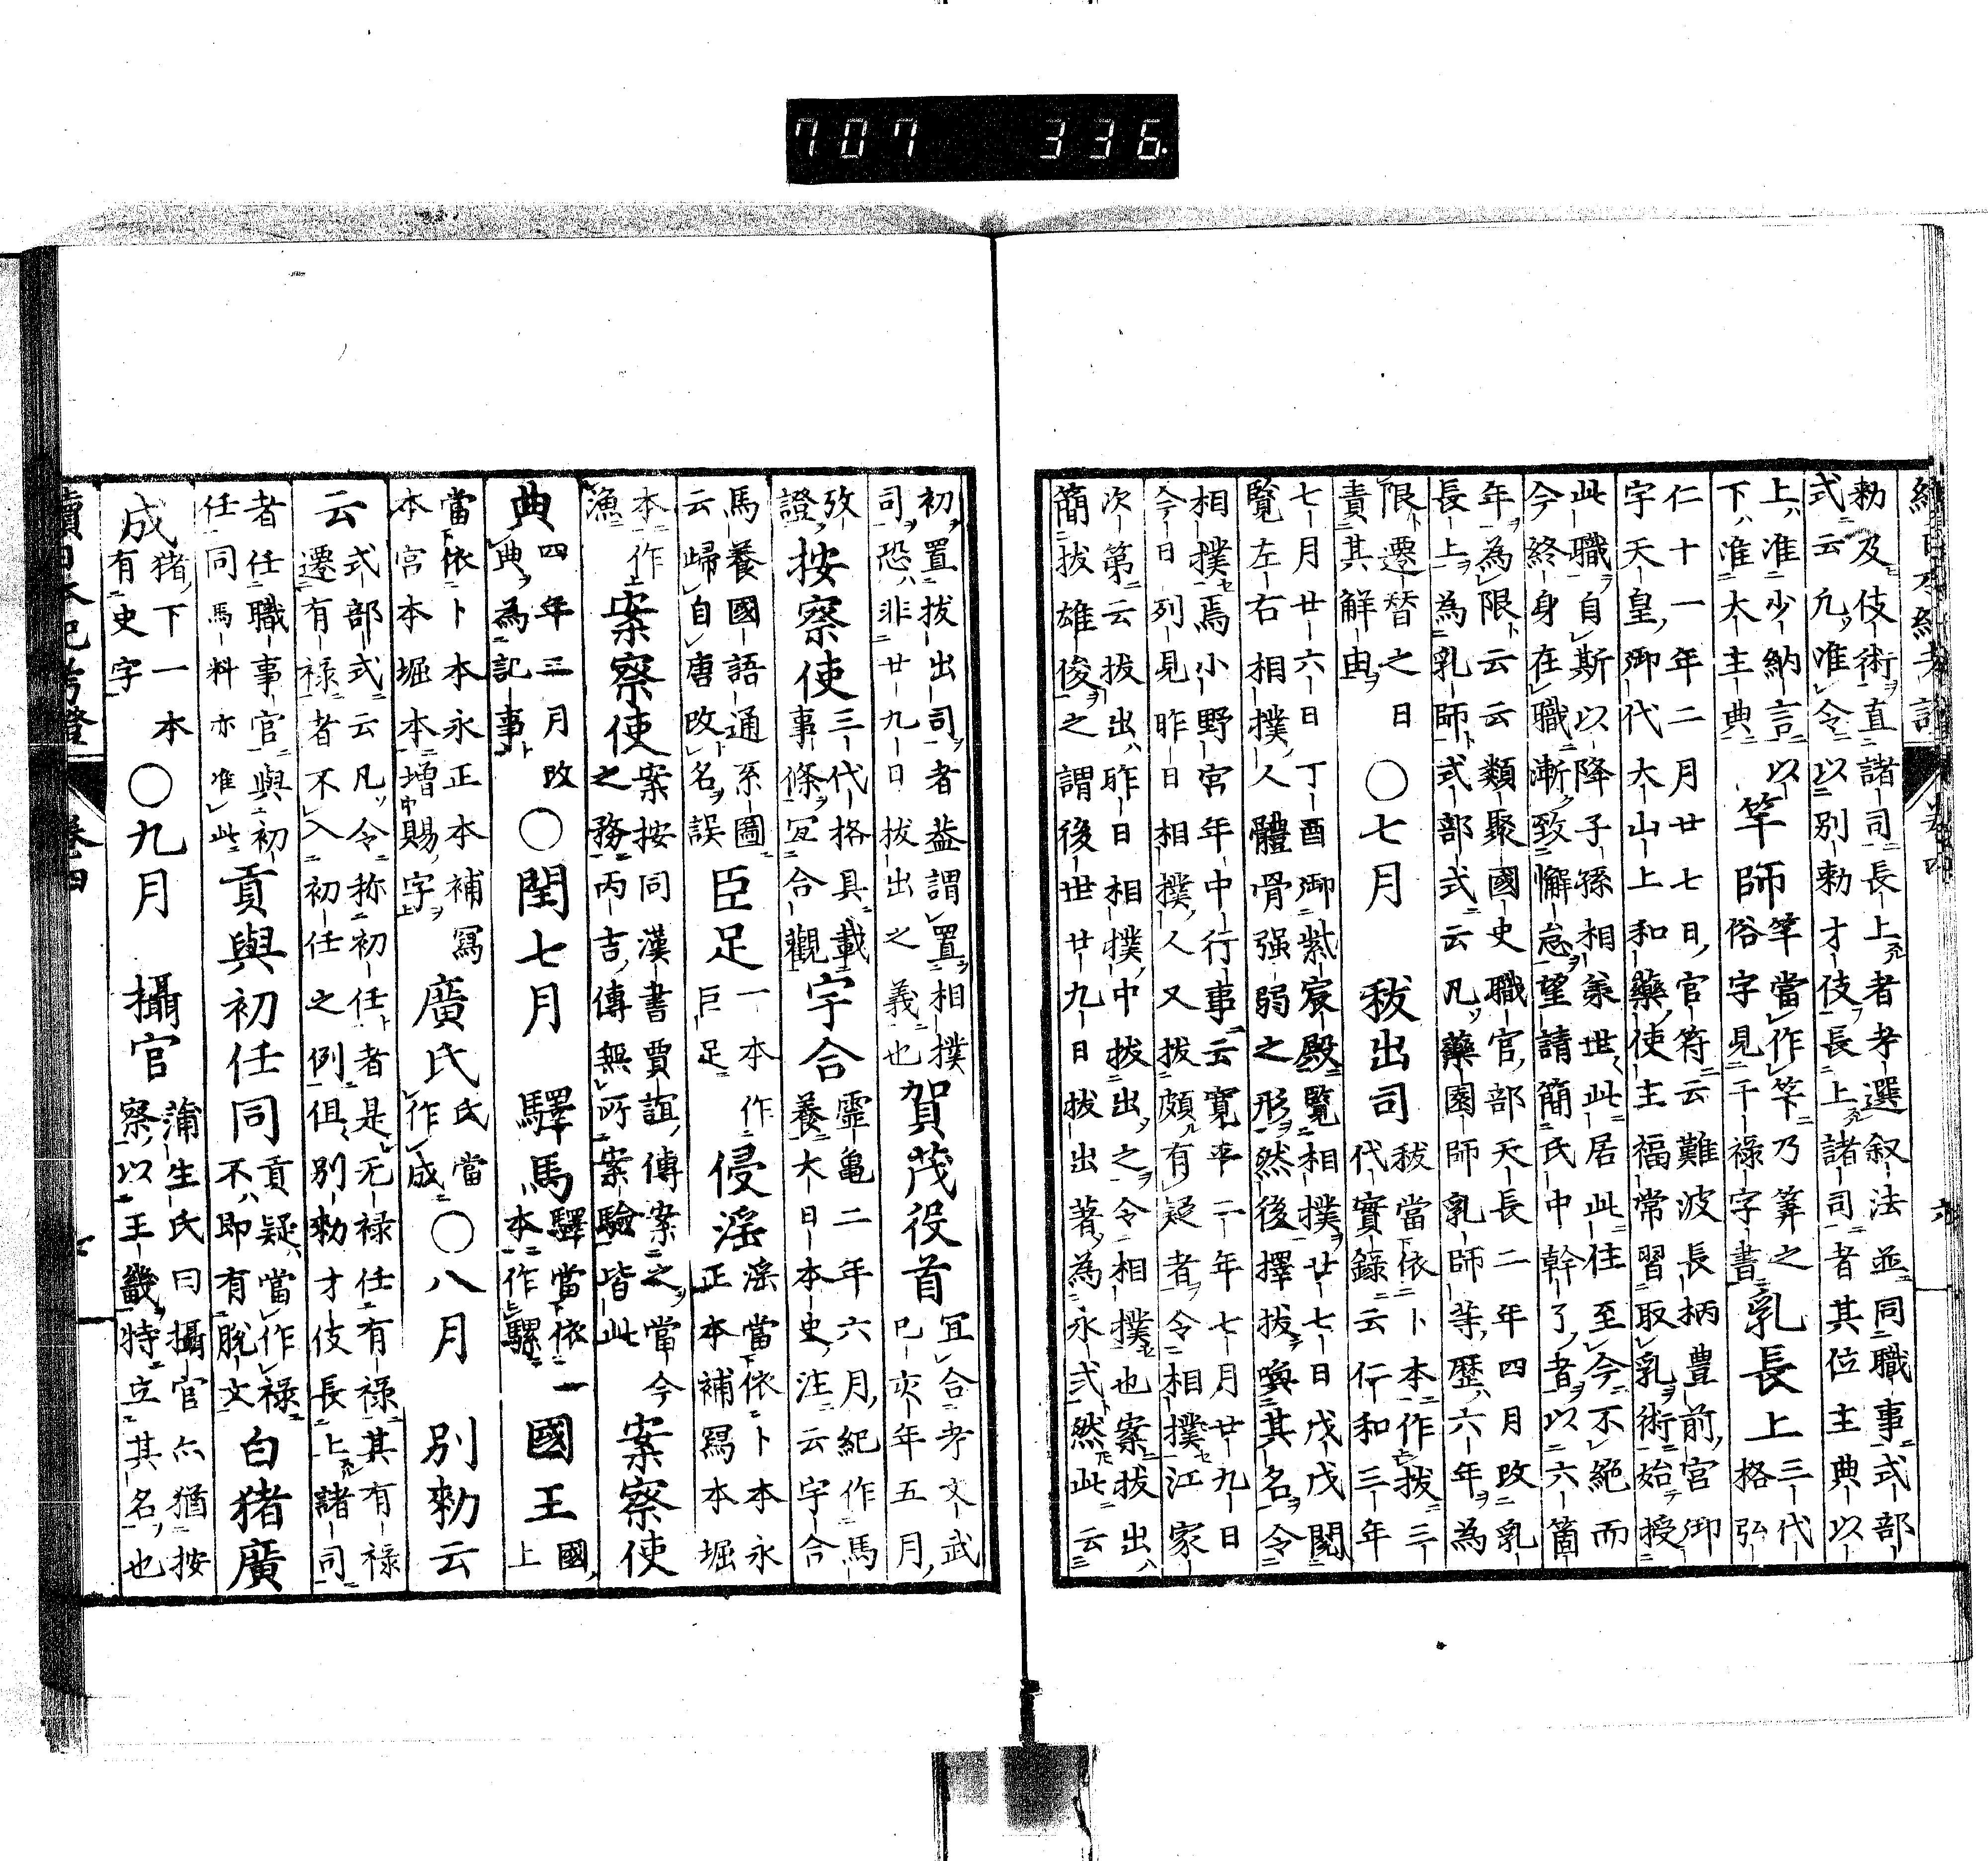 707 336
勅及伎術直諸司長上者考選叙法並同職事式部
式云凡准令以別勅才伎長上諸司者其位主典以
上准少納言以
下准大主典
竿師
竿當作笇乃筭之
俗字見干祿字書
乳長上
三代
格弘
仁十一年二月廿七日官符云難波長柄豊前宮御
字天皇御代大山上和藥使主福常習取乳術始授
此職自斯以降子孫相羕世世此居此住至今不絕而
今終身在職漸致懈怠望請簡氏中幹了者以六箇
年為限云云類聚國史職官部天長二年四月改乳
長上為乳師式部式云凡藥園師乳師等歷六年為
限遷替之日
責其解由
〇七月
秡出司
秡當依卜本作拔三
代實錄云行和三年
七月廿六日丁酉御紫宸殿覽相撲廿七日戊戌閱
覽左右相撲人體骨强弱之形然後擇拔喚其名令
相撲焉小野宮年中行事云寛平二年七月廿九日
今日列見昨日相撲人又拔頗有疑者令相撲江家
次第云拔出昨日相撲中拔出之令相撲也案拔出
簡拔雄俊之謂後世廿九日拔出著為永式然此云
初置拔出司者葢謂置相撲
司恐非廿九日拔出之義也
賀茂役首
冝合考文武
己亥年五月
攷
證
按察使
三代格具載
事條冝合觀
宇合
霊亀二年六月紀作馬
養大日本史注云宇合
馬養國語通系圖
云歸自唐改名誤
臣足
一本作
巨足
侵淫
淫當依卜本永
正本補冩本堀
本作
漁
案察使
案按同漢書賈誼傳案之當今
之務丙吉傳無所案驗皆此
案察使
典
四年三月攷
典為記事
〇閏七月
驛馬
驛當依一
本作騾
國王
國
上
當依卜本永正本補冩
本宮本堀本增賜字
廣氏
氏當
作成
〇八月
別勅云
云
式部式云凡令称初任者是无禄任有禄其有禄
遷有禄者不入初任之例但別勅才伎長上諸司
者任職事官與初
任同馬料亦准此
貢與初任同
貢疑當作禄
不即有脫文
白猪廣
成
猪下一本
有史字
〇九月
攝官
蒲生氏曰攝官亦猶按
察以王畿特立其名也
續日本紀考證
卷四